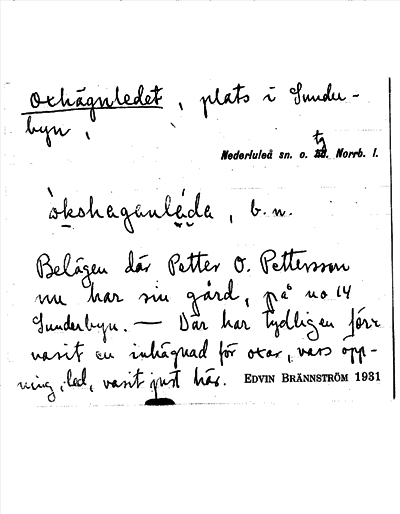 Oxhägnledet, plats i Sunder-
byn,
Nederluleå sn. o. tg. Norrb. l.
ò̀kshaganlèda, b. n.
Belägen där Petter O. Pettersson
nu har sin gård, på no 14
Sunderbyn. — Där har tydligen förr
varit en inhägnad för oxar, vars öpp-
ning, led, varit just här. EDVIN BRÄNNSTRÖM 1931